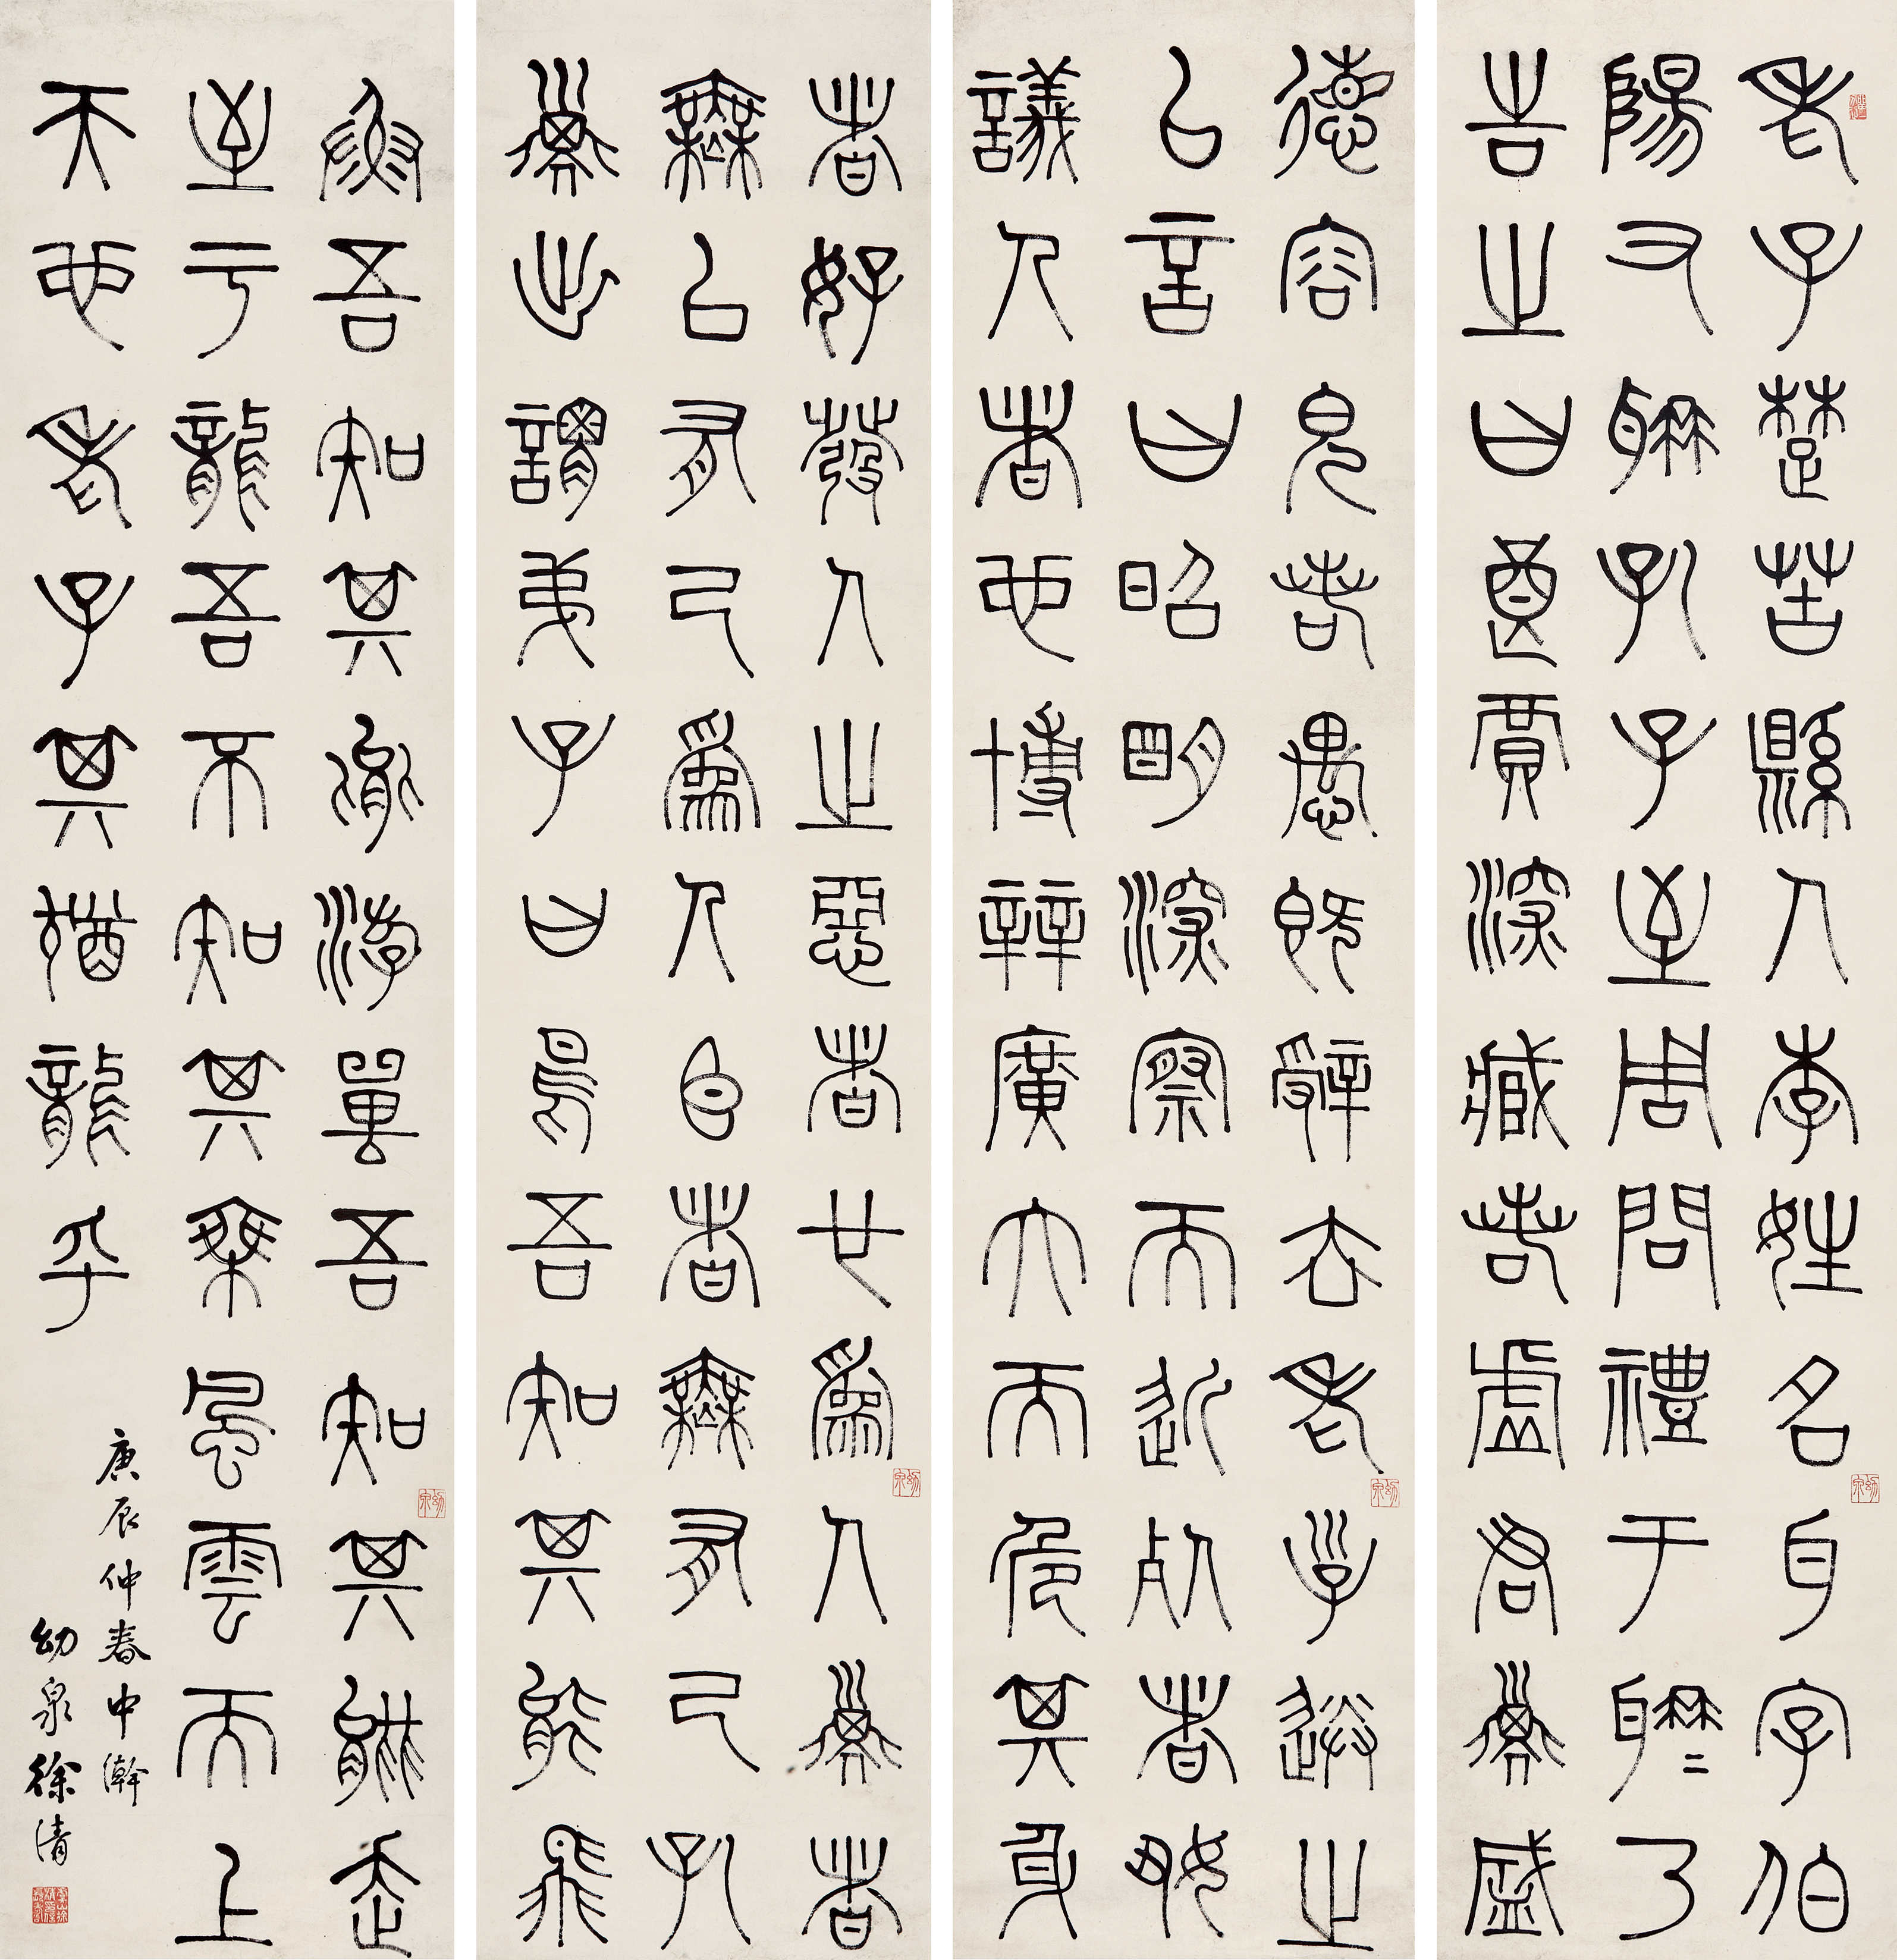 老子楚苦縣人李姓名耳字伯
陽又聃孔子至周問禮于聃=乃
告之曰良賈深臧若虛君子盛
德容皃若愚既辭去老子送之
㠯言曰昭明深察而近死者好
議人者也博辯廣大而危其身
者好發人之惡者也為人子者
無㠯有己為人臣者無有己孔
子出謂弟子曰鳥吾知其能飛
魚吾知其能游獸吾知其能走
至于龍吾不知其乘風雲而上
天也老子其猶龍乎
庚辰仲春中澣
幼泉徐清